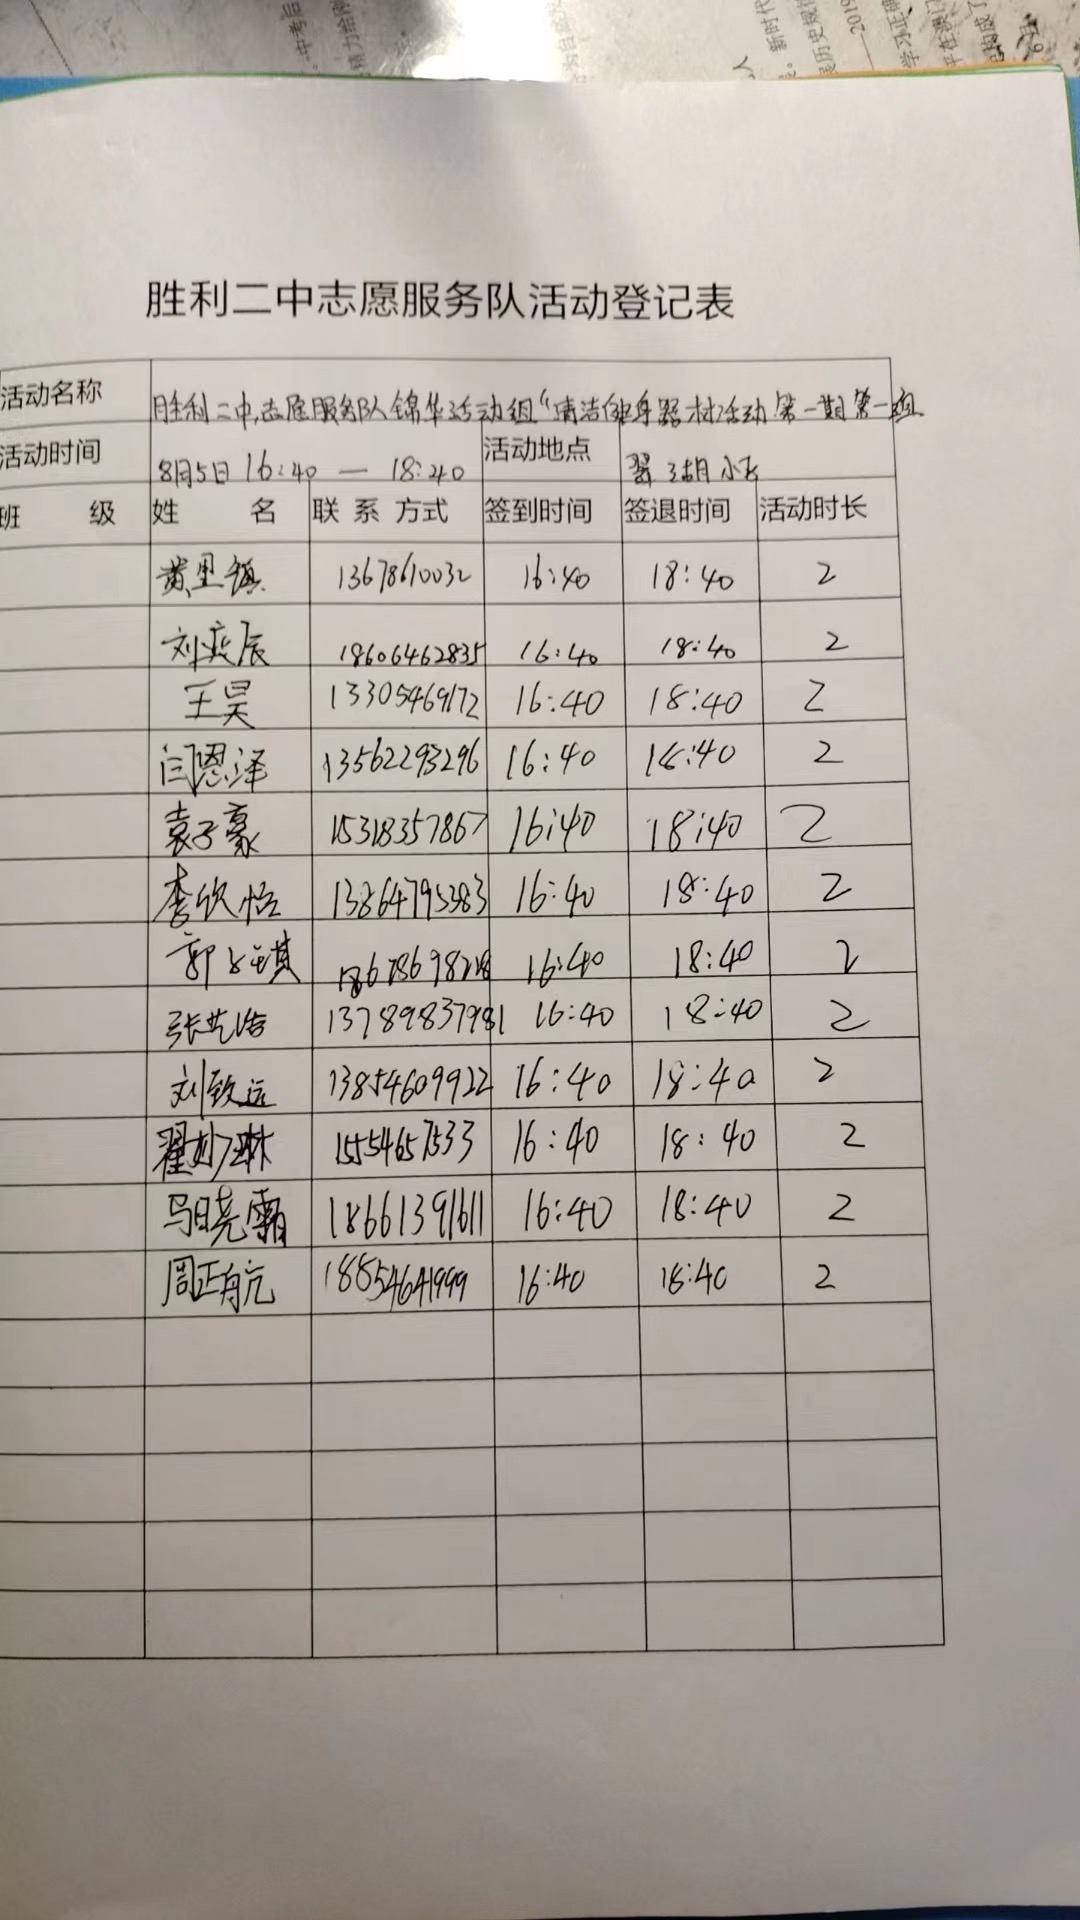 胜利二中志愿服务队活动登记表
活动名称 胜利二中志愿服务队锦华活动组“清洁健身器材活动第一期第一组
活动时间 8月5日 16:40 — 18:40 活动地点 翠湖小区
班 级 姓 名 联系方式 签到时间 签退时间 活动时长
黄里镇 13678610032 16:40 18:40 2
刘奕辰 18606462835 16:40 18:40 2
王昊 13305469172 16:40 18:40 2
闫恩泽 13562293296 16:40 18:40 2
袁子豪 15318357867 16:40 18:40 2
李欣怡 13864795383 16:40 18:40 2
郭 琪 16:40 18:40 2
张艺浩 13789837981 16:40 18:40 2
刘致远 13854609922 16:40 18:40 2
翟 琳 15554657533 16:40 18:40 2
马晓霜 18661391611 16:40 18:40 2
周正航 18854641999 16:40 18:40 2